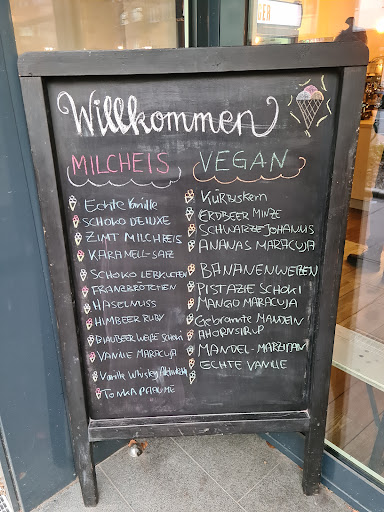 Willkommen
MILCHEIS
Echte Vanille
SCHOKO DELUXE
ZIMT MILCHREIS
KARAMELL-SALZ
SCHOKO LEBKUCHEN
FRANZBRÖTCHEN
HASELNUSS
HIMBEER RUBY
BLAUBEER WEIßE SCHOKI
VANILLE MARACUJA
Vanille Whiskey
TONKA PFLAUME
VEGAN
KÜRBISKERN
ERDBEER MINZE
SCHWARZE JOHANNIS
ANANAS MARACUJA
BANANENWEIZEN
PISTAZIE SCHOKI
MANGO MARACUJA
Gebrannte MANDELN
AHORNSIRUP
MANDEL-MARZIPAN
ECHTE VANILLE